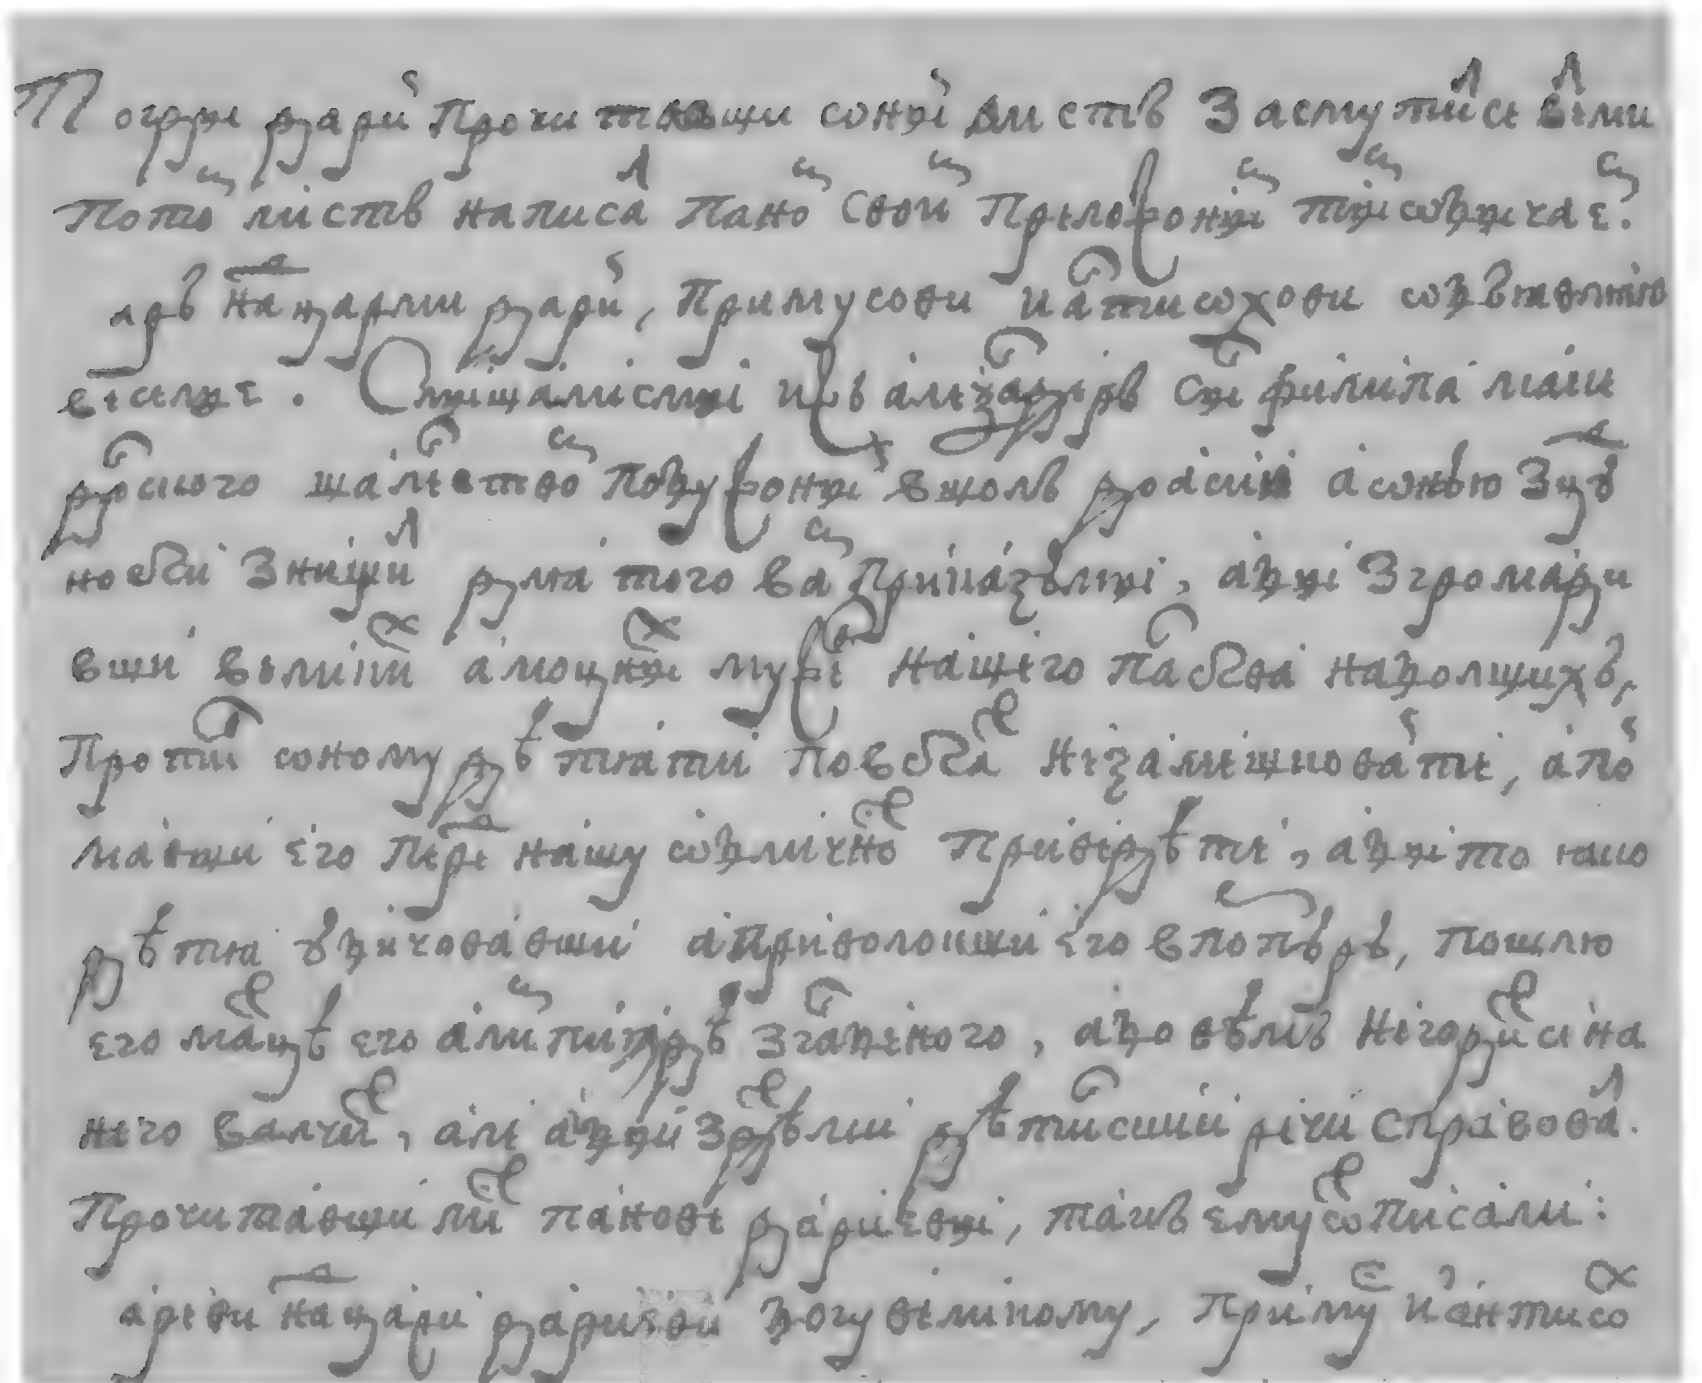 Тогды дарий прочитавши оный листъ засмутилсѧ велми
Потом листъ написал паном своим преложоным тым обычаем.
царъ над царми дарий, примусови и антиохови обывателю
веселые. Слышалисмы ижъ алеѯандеръ сын филипа маке
донского шаленством побужоный вшолъ до асии а оную
знищил для того вам приказуемы, абы згромади
вши великих а моцных мужей нашего панства наболших,
против оному дѣтяти не замешковайте, а пой
мавши его перед нашу обличност приведѣте, абы то яко
дѣтя убичовавши а приволокши его в порпъръ, пошлю
его матцѣ его алимпиядѣ зганеного, або вѣмъ не годитсе на
него валчит, але абы з дѣтми дѣтинские речи справовал.
Прочитавши лист панове дариевы, такъ ему отписали:
цареви над цари дариеви богу великому, примус и антио